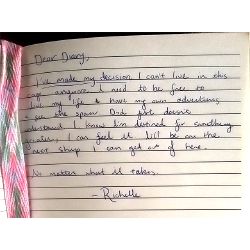 Dear Diary,
I've made my decision. I can't live in this
cage anymore. I need to be free to
live my life & have my own adventures,
& see the space. Dad just doesn't
understand. I know I'm destined for something
greater, I can feel it. I'll be on the
next ship I can get out of here.
No matter what it takes.
- Richelle